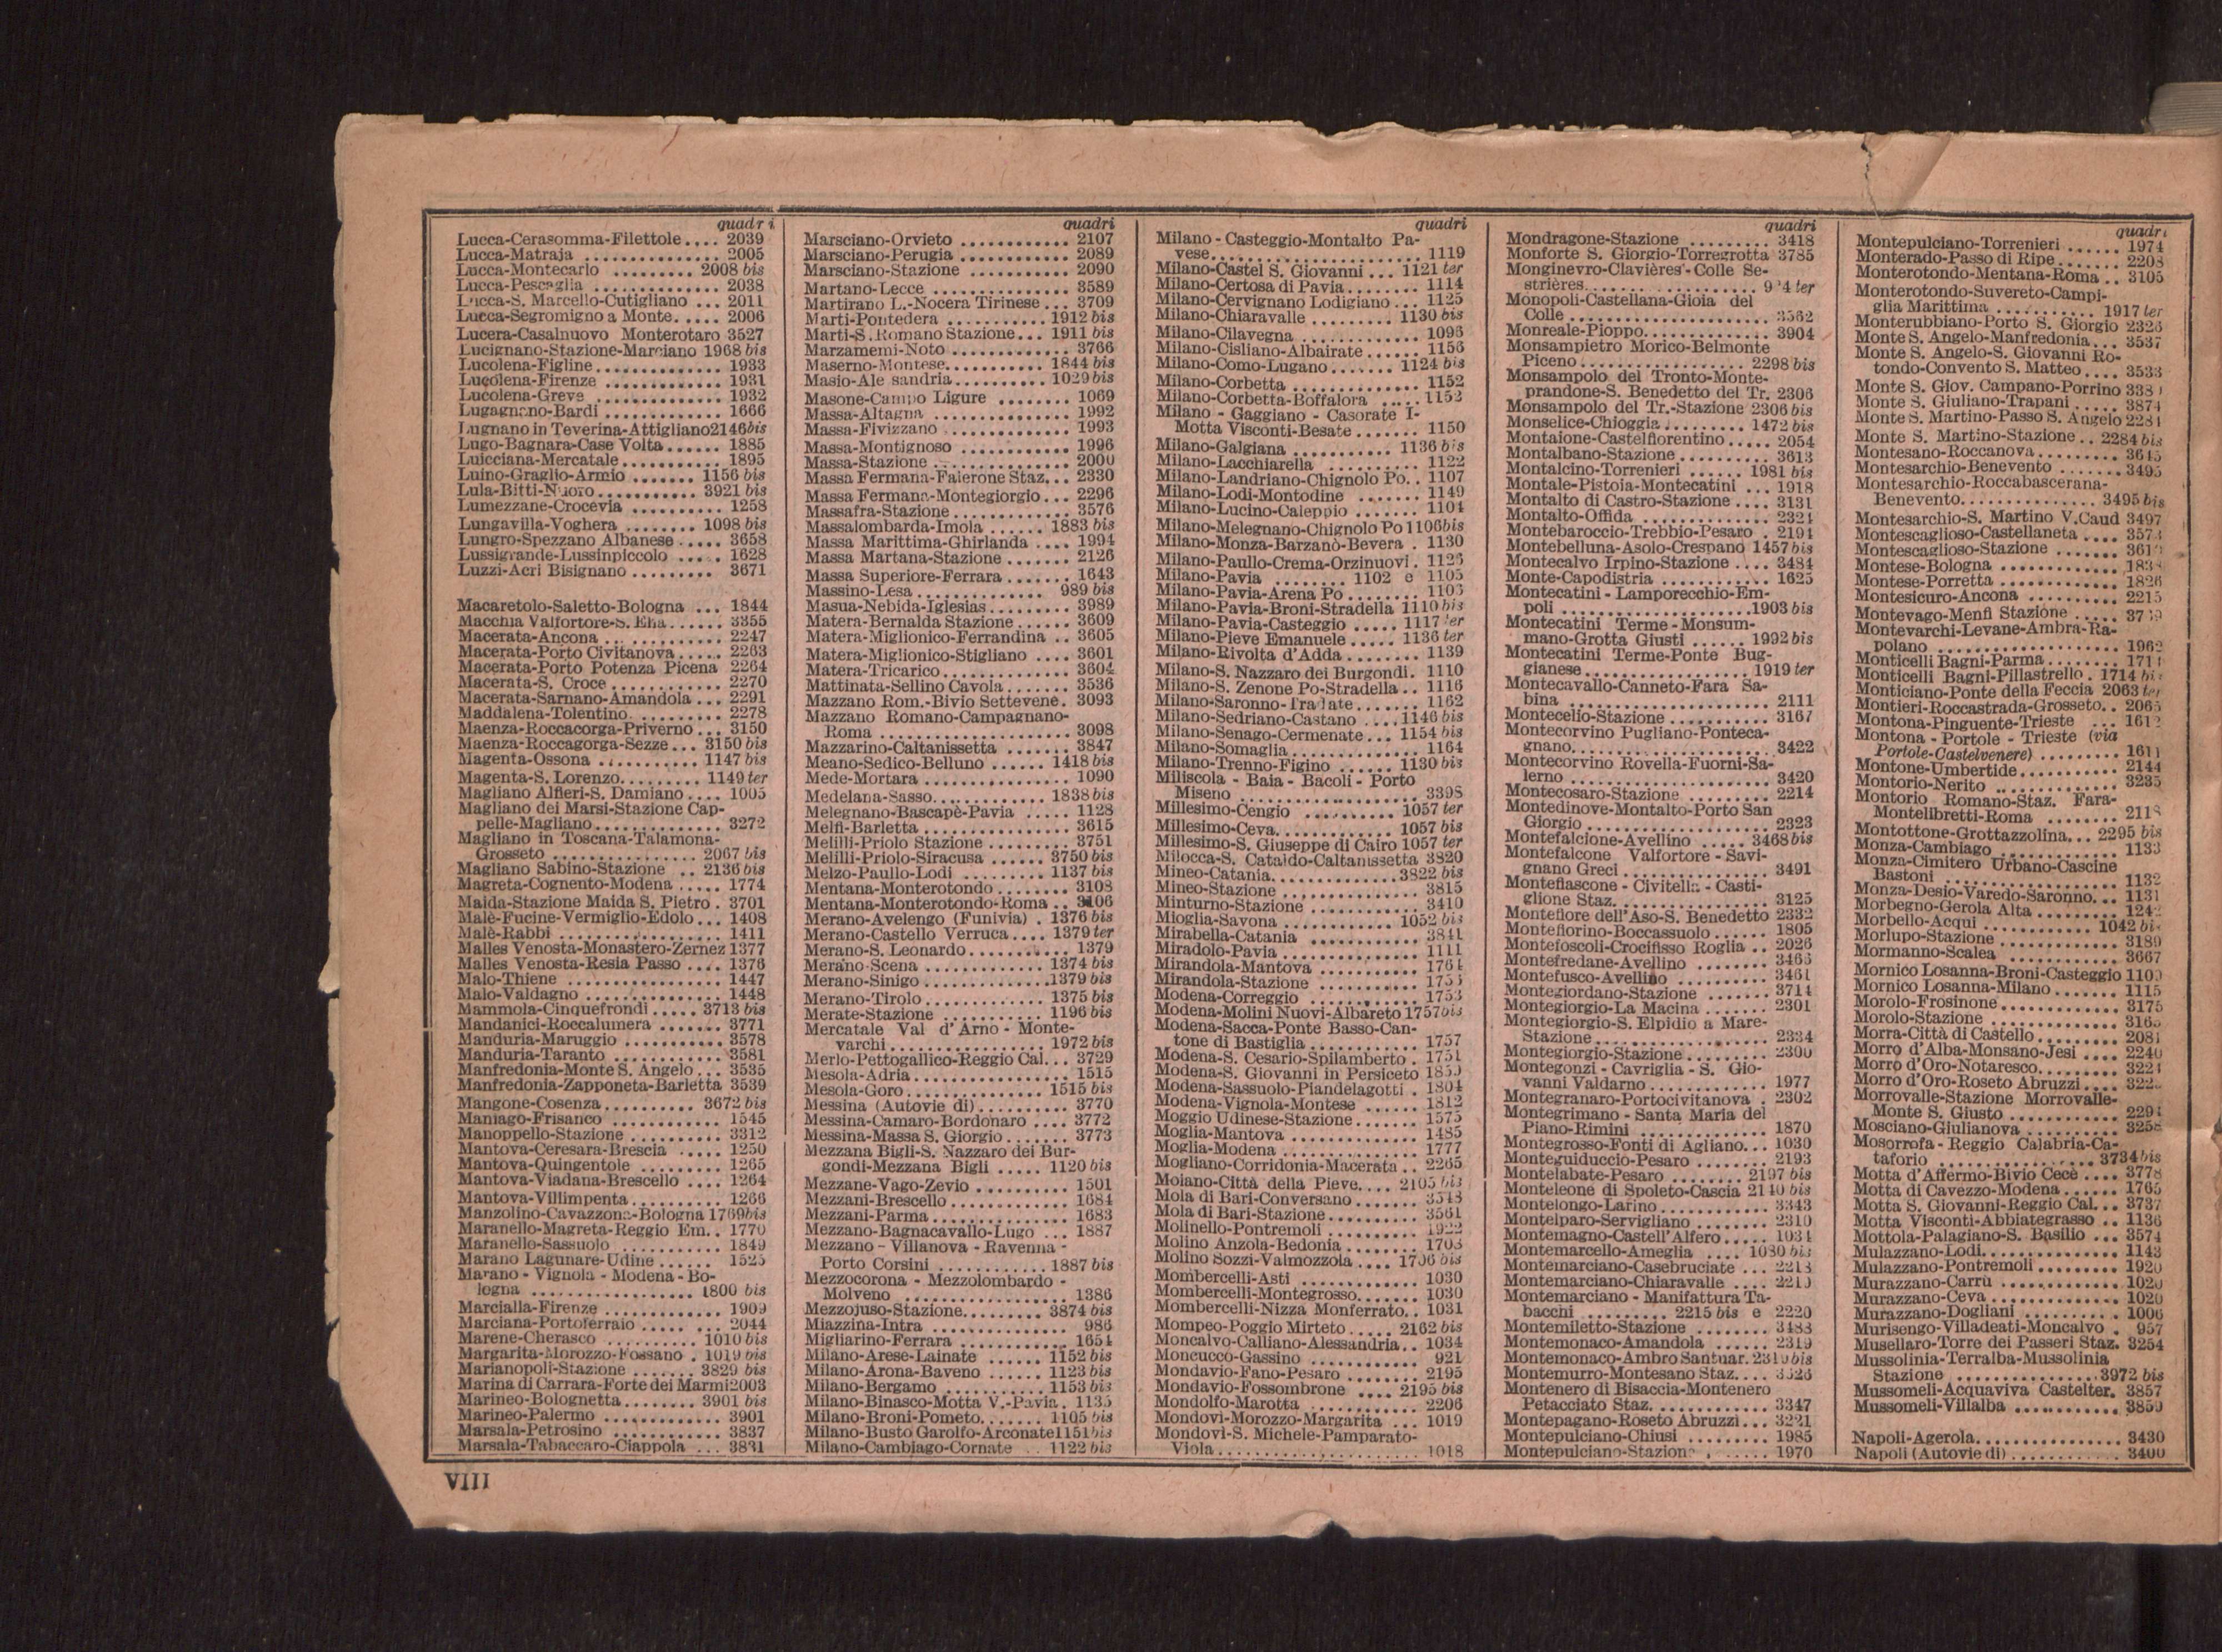 quadri
Lucca-Cerasomma-Filettole.... 2039
Lucca-Matraja ............... 2005
Lucca-Montecarlo ......... 2008 bis
Lucca-Pescaglia .............. 2038
Lucca-S. Marcello-Cutigliano ... 2011
Lucca-Segromigno a Monte..... 2006
Lucera-Casalnuovo Monterotaro 3527
Lucignano-Stazione-Marciano 1968 bis
Lucolena-Figline.............. 1933
Lucolena-Firenze ............. 1931
Lucolena-Greve .............. 1932
Lugagnano-Bardi ............. 1666
Lugnano in Teverina-Attigliano2146bis
Lugo-Bagnara-Case Volta...... 1885
Luicciana-Mercatale........... 1895
Luino-Graglio-Armio ....... 1156 bis
Lula-Bitti-Nuoro........... 3921 bis
Lumezzane-Crocevia .......... 1258
Lungavilla-Voghera ........ 1098 bis
Lungro-Spezzano Albanese ..... 3658
Lussigrande-Lussinpiccolo ..... 1628
Luzzi-Acri Bisignano ......... 3671
Macaretolo-Saletto-Bologna ... 1844
Macchia Valfortore-S. Elia...... 3355
Macerata-Ancona ............ 2247
Macerata-Porto Civitanova..... 2263
Macerata-Porto Potenza Picena 2264
Macerata-S. Croce ............ 2270
Macerata-Sarnano-Amandola ... 2291
Maddalena-Tolentino.......... 2278
Maenza-Roccacorga-Priverno ... 3150
Maenza-Roccagorga-Sezze... 3150 bis
Magenta-Ossona .......... 1147 bis
Magenta-S. Lorenzo......... 1149 ter
Magliano Alfieri-S. Damiano .... 1005
Magliano dei Marsi-Stazione Cap-
pelle-Magliano............. 3272
Magliano in Toscana-Talamona-
Grosseto ............... 2067 bis
Magliano Sabino-Stazione .. 2136 bis
Magreta-Cognento-Modena ..... 1774
Maida-Stazione Maida S. Pietro . 3701
Malè-Fucine-Vermiglio-Edolo... 1408
Malè-Rabbi ................... 1411
Malles Venosta-Monastero-Zernez 1377
Malles Venosta-Resia Passo .... 1376
Malo-Thiene ................ 1447
Malo-Valdagno .............. 1448
Mammola-Cinquefrondi ..... 3713 bis
Mandanici-Roccalumera ....... 3771
Manduria-Maruggio ........... 3578
Manduria-Taranto ............ 3581
Manfredonia-Monte S. Angelo... 3535
Manfredonia-Zapponeta-Barletta 3539
Mangone-Cosenza.......... 3672 bis
Maniago-Frisanco ............ 1545
Manoppello-Stazione .......... 3312
Mantova-Ceresara-Brescia ..... 1250
Mantova-Quingentole ......... 1265
Mantova-Viadana-Brescello .... 1264
Mantova-Villimpenta........... 1266
Manzolino-Cavazzona-Bologna 1769bis
Maranello-Magreta-Reggio Em.. 1770
Maranello-Sassuolo ........... 1849
Marano Lagunare-Udine ...... 1525
Marano - Vignola - Modena - Bo-
logna .................. 1800 bis
Marcialla-Firenze ............. 1909
Marciana-Portoferraio ..... ... 2044
Marene-Cherasco .......... 1010 bis
Margarita-Morozzo-Fossano . 1019 bis
Marianopoli-Stazione ....... 3829 bis
Marina di Carrara-Forte dei Marmi2003
Marineo-Bolognetta........ 3901 bis
Marineo-Palermo ............. 3901
Marsala-Petrosino ............ 3837
Marsala-Tabaccaro-Ciappola ... 3831
quadri
Marsciano-Orvieto ............ 2107
Marsciano-Perugia ............ 2089
Marsciano-Stazione ........... 2090
Martano-Lecce ............... 3589
Martirano L.-Nocera Tirinese ... 3709
Marti-Pontedera ........... 1912 bis
Marti-S. Romano Stazione... 1911 bis
Marzamemi-Noto ............. 3766
Maserno-Montese........... 1844 bis
Masio-Alessandria.......... 1029 bis
Masone-Campo Ligure ........ 1069
Massa-Altagna ............... 1992
Massa-Fivizzano .............. 1993
Massa-Montignoso ............ 1996
Massa-Stazione ............... 2000
Massa Fermana-Falerone Staz... 2330
Massa Fermana-Montegiorgio... 2296
Massafra-Stazione ............. 3576
Massalombarda-Imola ...... 1883 bis
Massa Marittima-Ghirlanda .... 1994
Massa Martana-Stazione....... 2126
Massa Superiore-Ferrara ....... 1643
Massino-Lesa .............. 989 bis
Masua-Nebida-Iglesias......... 3989
Matera-Bernalda Stazione...... 3609
Matera-Miglionico-Ferrandina .. 3605
Matera-Miglionico-Stigliano .... 3601
Matera-Tricarico.............. 3604
Mattinata-Sellino Cavola....... 3536
Mazzano Rom.-Bivio Settevene. 3093
Mazzano Romano-Campagnano-
Roma ..................... 3098
Mazzarino-Caltanissetta ....... 3847
Meano-Sedico-Belluno ...... 1418 bis
Mede-Mortara ................ 1090
Medelana-Sasso............. 1838 bis
Melegnano-Bascapè-Pavia ..... 1128
Melfi-Barletta ................ 3615
Melilli-Priolo Stazione ......... 3751
Melilli-Priolo-Siracusa ...... 3750 bis
Melzo-Paullo-Lodi ......... 1137 bis
Mentana-Monterotondo ........ 3108
Mentana-Monterotondo-Roma .. 3106
Merano-Avelengo (Funivia) . 1376 bis
Merano-Castello Verruca.... 1379 ter
Merano-S. Leonardo........... 1379
Merano-Scena ............. 1374 bis
Merano-Sinigo .............1379 bis
Merano-Tirolo.............. 1375 bis
Merate-Stazione ........... 1196 bis
Mercatale Val d'Arno - Monte-
varchi ................. 1972 bis
Merlo-Pettogallico-Reggio Cal... 3729
Mesola-Adria................. 1515
Mesola-Goro............... 1515 bis
Messina (Autovie di).......... 3770
Messina-Camaro-Bordonaro .... 3772
Messina-Massa S. Giorgio....... 3773
Mezzana Bigli-S. Nazzaro dei Bur-
gondi-Mezzana Bigli ..... 1120 bis
Mezzane-Vago-Zevio .......... 1501
Mezzani-Brescello ............. 1684
Mezzani-Parma ............... 1683
Mezzano-Bagnacavallo-Lugo ... 1887
Mezzano - Villanova - Ravenna -
Porto Corsini ............ 1887 bis
Mezzocorona - Mezzolombardo -
Molveno .................. 1386
Mezzojuso-Stazione......... 3874 bis
Miazzina-Intra ............... 986
Migliarino-Ferrara ............ 1654
Milano-Arese-Lainate ...... 1152 bis
Milano-Arona-Baveno ...... 1123 bis
Milano-Bergamo ........... 1153 bis
Milano-Binasco-Motta V.-Pavia. 1135
Milano-Broni-Pometo....... 1105 bis
Milano-Busto Garolfo-Arconate1151bis
Milano-Cambiago-Cornate .. 1122 bis
quadri
Milano - Casteggio-Montalto Pa-
vese...................... 1119
Milano-Castel S. Giovanni ... 1121 ter
Milano-Certosa di Pavia........ 1114
Milano-Cervignano Lodigiano ... 1125
Milano-Chiaravalle ......... 1130 bis
Milano-Cilavegna ............. 1096
Milano-Cisliano-Albairate...... 1156
Milano-Como-Lugano....... 1124 bis
Milano-Corbetta .............. 1152
Milano-Corbetta-Boffalora ..... 1152
Milano - Gaggiano - Casorate I-
Motta Visconti-Besate ....... 1150
Milano-Galgiana ........... 1136 bis
Milano-Lacchiarella .......... 1122
Milano-Landriano-Chignolo Po.. 1107
Milano-Lodi-Montodine ....... 1149
Milano-Lucino-Caleppio ....... 1104
Milano-Melegnano-Chignolo Po 1106bis
Milano-Monza-Barzanò-Bevera . 1130
Milano-Paullo-Crema-Orzinuovi. 1126
Milano-Pavia ........ 1102 e 1105
Milano-Pavia-Arena Po ........ 1103
Milano-Pavia-Broni-Stradella 1110 bis
Milano-Pavia-Casteggio ..... 1117 ter
Milano-Pieve Emanuele..... 1136 ter
Milano-Rivolta d'Adda........ 1139
Milano-S. Nazzaro dei Burgondi. 1110
Milano-S. Zenone Po-Stradella.. 1116
Milano-Saronno-Tradate....... 1162
Milano-Sedriano-Castano .... 1146 bis
Milano-Senago-Cermenate... 1154 bis
Milano-Somaglia.............. 1164
Milano-Trenno-Figino ....... 1130 bis
Miliscola - Baia - Bacoli - Porto
Miseno ................... 3398
Millesimo-Cengio .......... 1057 ter
Millesimo-Ceva............. 1057 bis
Millesimo-S. Giuseppe di Cairo 1057 ter
Milocca-S. Cataldo-Caltanissetta 3820
Mineo-Catania..............3822 bis
Mineo-Stazione ............... 3815
Minturno-Stazione ............ 3410
Mioglia-Savona ............ 1052 bis
Mirabella-Catania ............ 3841
Miradolo-Pavia ............... 1111
Mirandola-Mantova ........... 1764
Mirandola-Stazione ...........
Modena-Correggio ............ 1753
Modena-Molini Nuovi-Albareto 1757bis
Modena-Sacca-Ponte Basso-Can-
tone di Bastiglia ............ 1757
Modena-S. Cesario-Spilamberto . 1751
Modena-S. Giovanni in Persiceto
Modena-Sassuolo-Piandelagotti . 1804
Modena-Vignola-Montese ...... 1812
Moggio Udinese-Stazione....... 1575
Moglia-Mantova .............. 1485
Moglia-Modena ............... 1777
Mogliano-Corridonia-Macerata.. 2265
Moiano-Città della Pieve.... 2105 bis
Mola di Bari-Conversano.......
Mola di Bari-Stazione.......... 3561
Molinello-Pontremoli .......... 1922
Molino Anzola-Bedonia ........ 1703
Molino Sozzi-Valmozzola .... 1706 bis
Mombercelli-Asti ............. 1030
Mombercelli-Montegrosso....... 1030
Mombercelli-Nizza Monferrato.. 1031
Mompeo-Poggio Mirteto ..... 2162 bis
Moncalvo-Calliano-Alessandria.. 1034
Moncucco-Gassino ........... 921
Mondavio-Fano-Pesaro ........ 2195
Mondavio-Fossombrone .... 2195 bis
Mondolfo-Marotta ............ 2206
Mondovì-Morozzo-Margarita ... 1019
Mondovì-S. Michele-Pamparato-
Viola...................... 1018
quadri
Mondragone-Stazione ......... 3418
Monforte S. Giorgio-Torregrotta 3785
Monginevro-Clavières-Colle Se-
strières................... ter
Monopoli-Castellana-Gioia del
Colle ..................... 3562
Monreale-Pioppo.............. 3904
Monsampietro Morico-Belmonte
Piceno ................. 2298 bis
Monsampolo del Tronto-Monte-
prandone-S. Benedetto del Tr. 2306
Monsampolo del Tr.-Stazione 2306 bis
Monselice-Chioggia ........ 1472 bis
Montaione-Castelfiorentino ..... 2054
Montalbano-Stazione .......... 3613
Montalcino-Torrenieri ...... 1981 bis
Montale-Pistoia-Montecatini ... 1918
Montalto di Castro-Stazione .... 3131
Montalto-Offida .............. 2321
Montebaroccio-Trebbio-Pesaro . 2191
Montebelluna-Asolo-Crespano 1457 bis
Montecalvo Irpino-Stazione .... 3484
Monte-Capodistria ............ 1625
Montecatini - Lamporecchio-Em-
poli ....................1903 bis
Montecatini Terme - Monsum-
mano-Grotta Giusti ...... 1992 bis
Montecatini Terme-Ponte Bug-
gianese................. 1919 ter
Montecavallo-Canneto-Fara Sa-
bina ...................... 2111
Montecelio-Stazione ........... 3167
Montecorvino Pugliano-Ponteca-
gnano..................... 3422
Montecorvino Rovella-Fuorni-Sa-
lerno ..................... 3420
Montecosaro-Stazione ......... 2214
Montedinove-Montalto-Porto San
Giorgio ................... 2323
Montefalcione-Avellino ..... 3468 bis
Montefalcone Valfortore - Savi-
gnano Greci ............... 3491
Montefiascone - Civitella - Casti-
glione Staz................. 3125
Montefiore dell'Aso-S. Benedetto 2332
Montefiorino-Boccassuolo ...... 1805
Montefoscoli-Crocifisso Roglia .. 2026
Montefredane-Avellino ........ 3465
Montefusco-Avellino .......... 3461
Montegiordano-Stazione ....... 3714
Montegiorgio-La Macina ....... 2301
Montegiorgio-S. Elpidio a Mare-
Stazione................... 2334
Montegiorgio-Stazione ......... 2300
Montegonzi - Cavriglia - S. Gio-
vanni Valdarno ............. 1977
Montegranaro-Portocivitanova . 2302
Montegrimano - Santa Maria del
Piano-Rimini .............. 1870
Montegrosso-Fonti di Agliano... 1030
Monteguiduccio-Pesaro ........ 2193
Montelabate-Pesaro ........ 2197 bis
Monteleone di Spoleto-Cascia 2140 bis
Montelongo-Larino ............ 3343
Montelparo-Servigliano ........ 2310
Montemagno-Castell'Alfero..... 1034
Montemarcello-Ameglia .... 1080 bis
Montemarciano-Casebruciate ... 2213
Montemarciano-Chiaravalle .... 2219
Montemarciano - Manifattura Ta-
bacchi ......... 2215 bis e 2220
Montemiletto-Stazione ........
Montemonaco-Amandola ...... 2319
Montemonaco-Ambro Santuar. bis
Montemurro-Montesano Staz....
Montenero di Bisaccia-Montenero
Petacciato Staz............. 3347
Montepagano-Roseto Abruzzi... 3221
Montepulciano-Chiusi ......... 1985
Montepulciano-Stazione ....... 1970
quadri
Montepulciano-Torrenieri ...... 1974
Monterado-Passo di Ripe....... 2208
Monterotondo-Mentana-Roma .. 3105
Monterotondo-Suvereto-Campi-
glia Marittima ........... 1917 ter
Monterubbiano-Porto S. Giorgio 2326
Monte S. Angelo-Manfredonia... 3537
Monte S. Angelo-S. Giovanni Ro-
tondo-Convento S. Matteo .... 3533
Monte S. Giov. Campano-Porrino
Monte S. Giuliano-Trapani ..... 3874
Monte S. Martino-Passo S. Angelo 2284
Monte S. Martino-Stazione .. 2284 bis
Montesano-Roccanova......... 3645
Montesarchio-Benevento ....... 3495
Montesarchio-Roccabascerana-
Benevento............... 3495 bis
Montesarchio-S. Martino V.Caud 3497
Montescaglioso-Castellaneta ....
Montescaglioso-Stazione .......
Montese-Bologna .............
Montese-Porretta ............. 1826
Montesicuro-Ancona .......... 2215
Montevago-Menfi Stazione .....
Montevarchi-Levane-Ambra-Ra-
polano ...................
Monticelli Bagni-Parma........
Monticelli Bagni-Pillastrello. 1714 bis
Monticiano-Ponte della Feccia 2063 ter
Montieri-Roccastrada-Grosseto.. 2065
Montona-Pinguente-Trieste ... 1612
Montona - Portole - Trieste (via
Portole-Castelvenere) ......... 1611
Montone-Umbertide........... 2144
Montorio-Nerito .............. 3235
Montorio Romano-Staz. Fara-
Montelibretti-Roma ........
Montottone-Grottazzolina... 2295 bis
Monza-Cambiago ............. 1133
Monza-Cimitero Urbano-Cascine
Bastoni ................... 1132
Monza-Desio-Varedo-Saronno... 1131
Morbegno-Gerola Alta .........
Morbello-Acqui ............ 1042 bis
Morlupo-Stazione ............. 3189
Mormanno-Scalea ............ 3667
Mornico Losanna-Broni-Casteggio
Mornico Losanna-Milano ....... 1115
Morolo-Frosinone ............. 3175
Morolo-Stazione ..............
Morra-Città di Castello ........
Morro d'Alba-Monsano-Jesi .... 2240
Morro d'Oro-Notaresco......... 3224
Morro d'Oro-Roseto Abruzzi....
Morrovalle-Stazione Morrovalle-
Monte S. Giusto ............
Mosciano-Giulianova ..........
Mosorrofa - Reggio Calabria-Ca-
taforio ................ 3734 bis
Motta d'Affermo-Bivio Cecè .... 3778
Motta di Cavezzo-Modena...... 1765
Motta S. Giovanni-Reggio Cal... 3737
Motta Visconti-Abbiategrasso .. 1136
Mottola-Palagiano-S. Basilio ... 3574
Mulazzano-Lodi............... 1143
Mulazzano-Pontremoli ......... 1920
Murazzano-Carrù ............. 1020
Murazzano-Ceva .............. 1020
Murazzano-Dogliani .......... 1006
Murisengo-Villadeati-Moncalvo . 957
Musellaro-Torre dei Passeri Staz. 3254
Mussolinia-Terralba-Mussolinia
Stazione ................3972 bis
Mussomeli-Acquaviva Castelter. 3857
Mussomeli-Villalba ........... 3859
Napoli-Agerola............... 3430
Napoli (Autovie di)........... 3400
VIII